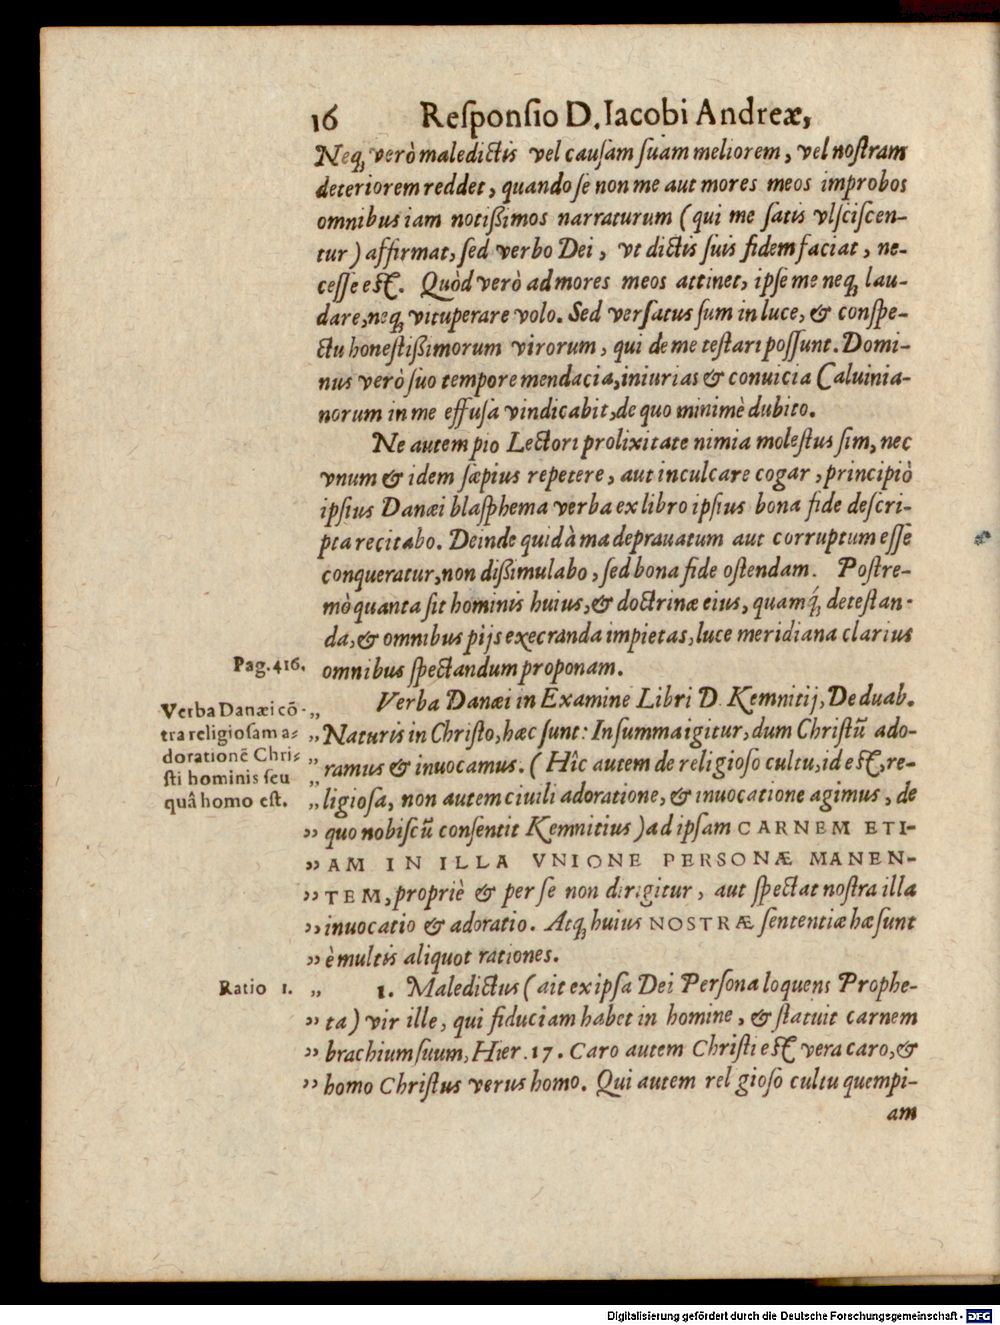 16 Reſponſio D. Iacobi Andreæ,
Neq; verò maledictis vel cauſam ſuam meliorem, vel noſtram
deteriorem reddet, quando ſe non me aut mores meos improbos
omnibus iam notißimos narraturum (qui me ſatis vlſciſcen-
tur) affirmat, ſed verbo Dei, vt dictis ſuis fidem faciat, ne-
ceſſe eſt. Quòd verò ad mores meos attinet, ipſe me neq; lau-
dare, neq; vituperare volo. Sed verſatus ſum in luce, & conſpe-
ctu honeſtißimorum virorum, qui de me teſtari poſſunt. Domi-
nus verò ſuo tempore mendacia, iniurias & conuicia Caluinia-
norum in me effuſa vindicabit, de quo minimè dubito.
Ne autem pio Lectori prolixitate nimia moleſtus ſim, nec
vnum & idem ſæpius repetere, aut inculcare cogar, principiò
ipſius Danæi blaſphema verba ex libro ipſius bona fide deſcri-
pta recitabo. Deinde quid à ma deprauatum aut corruptum eſſe
conqueratur, non dißimulabo, ſed bona fide oſtendam. Poſtre-
mò quanta ſit hominis huius, & doctrinæ eius, quamq́; deteſtan-
da, & omnibus pijs execranda impietas, luce meridiana clarius
Pag. 416.
omnibus ſpectandum proponam.
Verba Danæi in Examine Libri D. Kemnitij, De duab.
Verba Danæi cō-
tra religioſam a-
dorationē Chri-
ſti hominis ſeu
quâ homo eſt.
„ Naturis in Chriſto, hæc ſunt: In ſumma igitur, dum Chriſtū ado-
„ ramus & inuocamus. (Hîc autem de religioſo cultu, id eſt, re-
„ ligioſa, non autem ciuili adoratione, & inuocatione agimus, de
„ quo nobiſcū conſentit Kemnitius) ad ipſam CARNEM ETI-
„ AM IN ILLA VNIONE PERSONÆ MANEN-
„ TEM, propriè & per ſe non dirigitur, aut ſpectat noſtra illa
„ inuocatio & adoratio. Atq; huius NOSTRÆ ſententiæ hæ ſunt
„ è multis aliquot rationes.
Ratio 1.
„ 1. Maledictus (ait ex ipſa Dei Perſona loquens Prophe-
„ ta) vir ille, qui fiduciam habet in homine, & ſtatuit carnem
„ brachium ſuum, Hier. 17. Caro autem Chriſti eſt vera caro, &
„ homo Chriſtus verus homo. Qui autem rel gioſo cultu quempi-
am
Digitalisierung gefördert durch die Deutsche Forschungsgemeinschaft - DFG